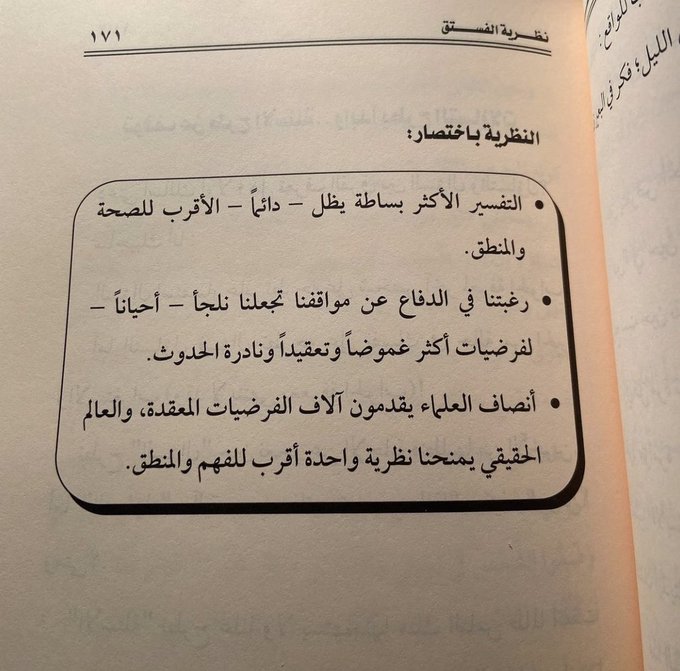 نظرية الفستق ١٧١
النظرية باختصار:
• التفسير الأكثر بساطة يظل – دائماً – الأقرب للصحة
والمنطق.
• رغبتنا في الدفاع عن مواقفنا تجعلنا نلجأ – أحياناً –
لفرضيات أكثر غموضاً وتعقيداً ونادرة الحدوث.
• أنصاف العلماء يقدمون آلاف الفرضيات المعقدة، والعالم
الحقيقي يمنحنا نظرية واحدة أقرب للفهم والمنطق.
للواقع:
الليل؛ فكر في